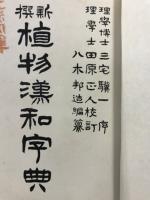 理學博士 三宅驥一 序
理學士 田原正人 校訂
八木邦造 編纂
新撰
植物漢和字典